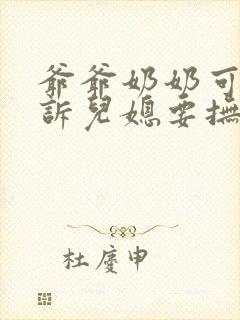 爺爺奶奶可
訴兒媳要撫
杜慶申